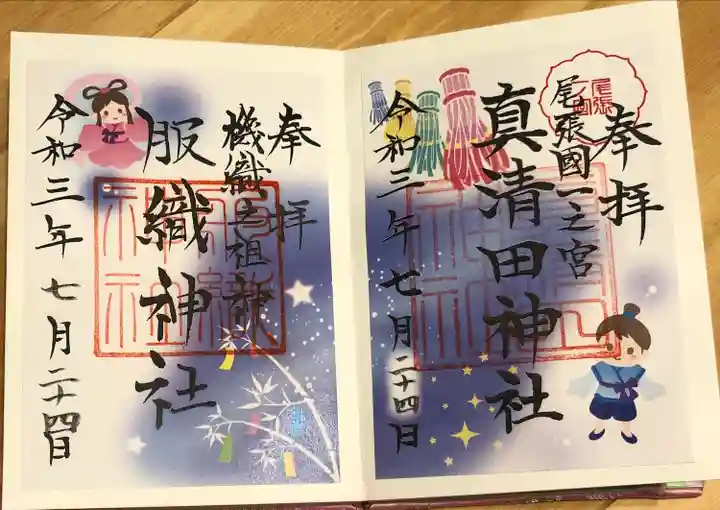 奉拝
尾張國一之宮
真清田神社
令和三年七月二十四日
奉拝
機織之祖神
服織神社
令和三年七月二十四日